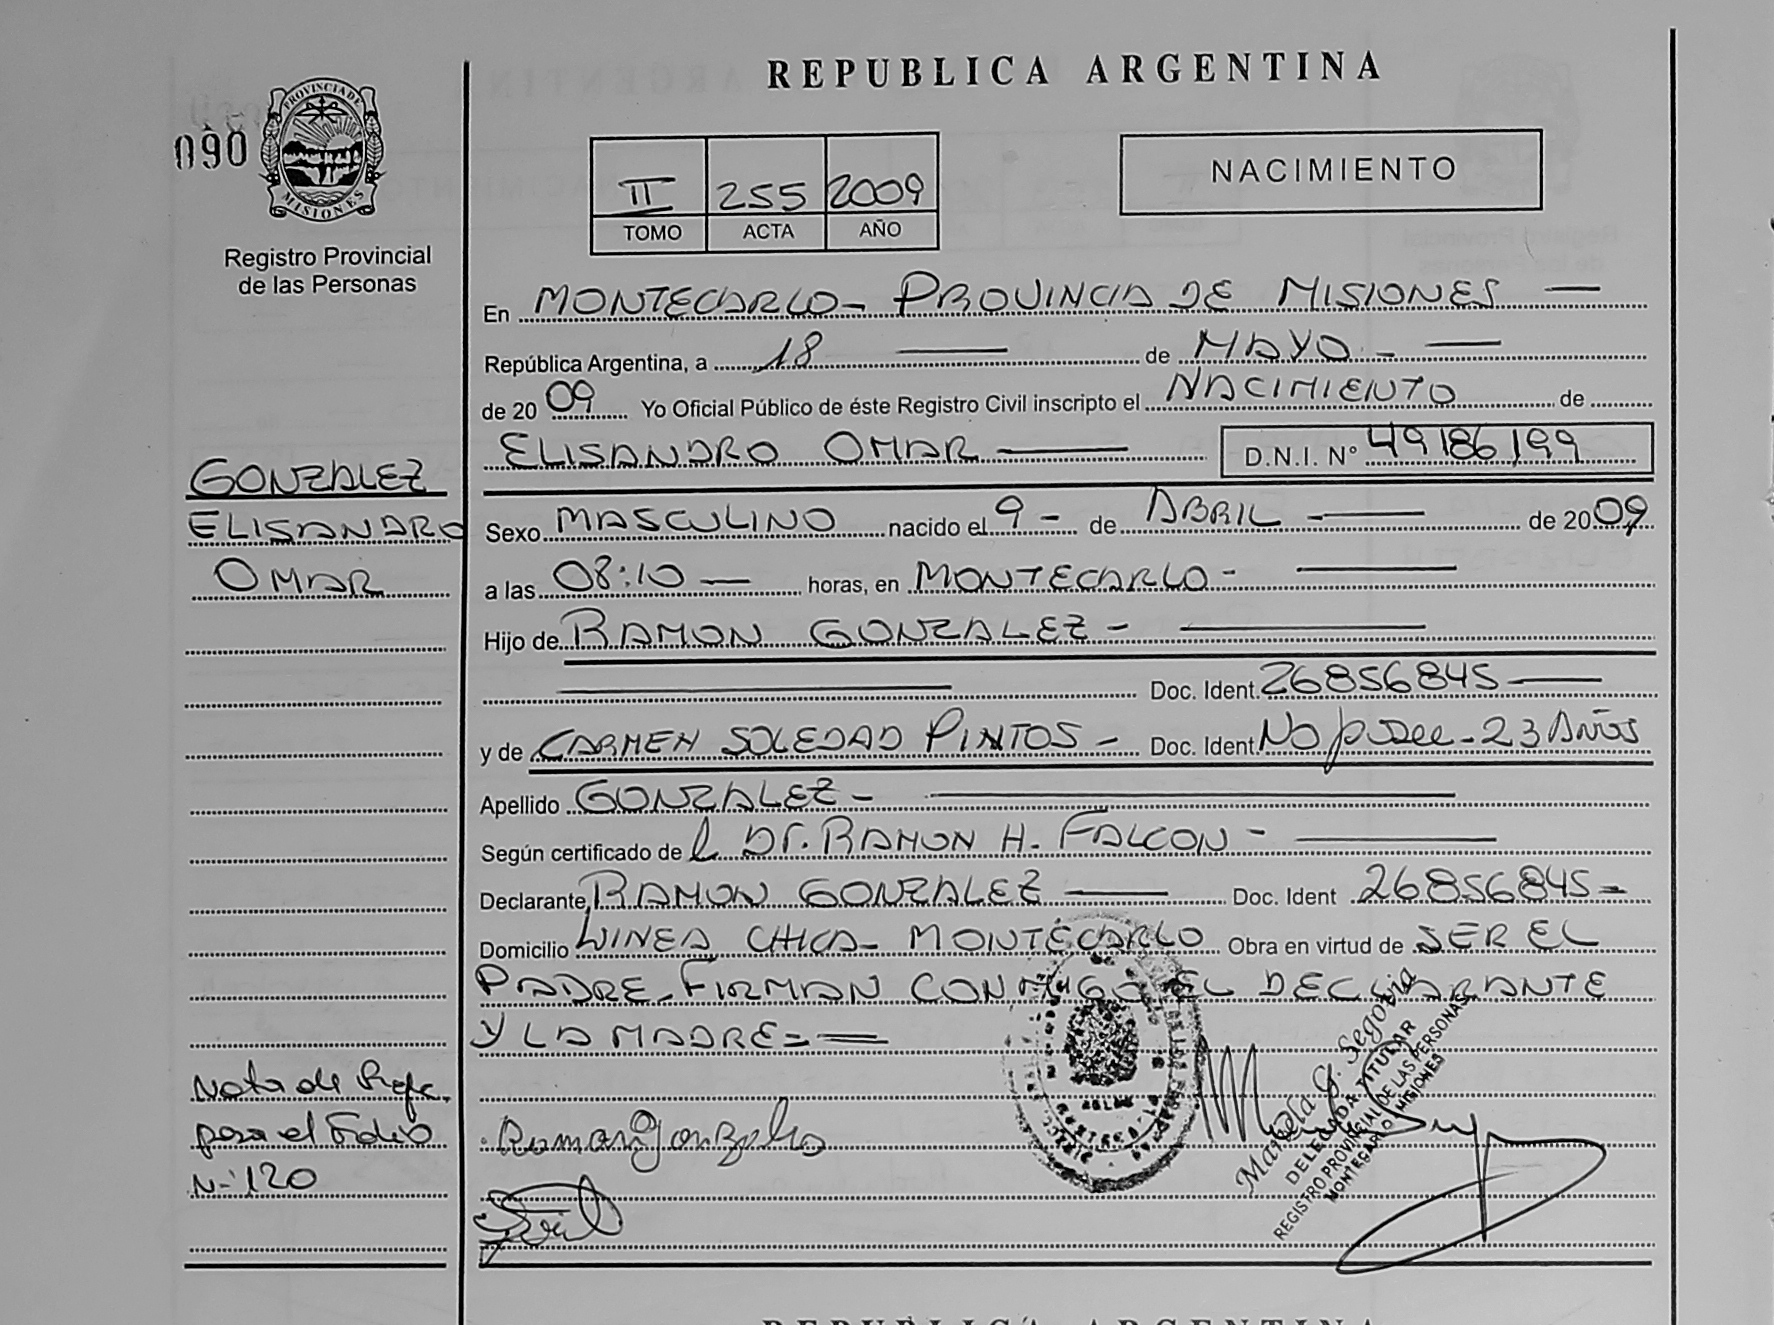 REPUBLICA ARGENTINA
090
PROVINCIA DE
MISIONES
Registro Provincial
de las Personas
II 255 2009
TOMO ACTA AÑO
NACIMIENTO
En MONTECARLO - PROVINCIA DE MISIONES
República Argentina, a 18 de MAYO
de 2009 Yo Oficial Público de éste Registro Civil inscripto el NACIMIENTO de
ELISANDRO OMAR D.N.I. Nº 49186199
GONZALEZ
ELISANDRO
OMAR
Sexo MASCULINO nacido el 9 - de ABRIL de 2009
a las 08:10 horas, en MONTECARLO -
Hijo de RAMON GONZALEZ -
Doc. Ident. 26856845
y de CARMEN SOLEDAD PINTOS - Doc. Ident. No posee - 23 AÑOS
Apellido GONZALEZ -
Según certificado de l Dr. RAMON H. FALCON -
Declarante RAMON GONZALEZ Doc. Ident 26856845 -
Domicilio LINEA CHICA - MONTECARLO Obra en virtud de SER EL
PADRE - FIRMAN CONMIGO EL DECLARANTE
Y LA MADRE =
Nota de Refe.
para el Folio
N- 120
Ramon Gonzalez
Mariela G. Segovia
DELEGADA TITULAR
REGISTRO PROVINCIAL DE LAS PERSONAS
MONTECARLO MISIONES
REPUBLICA ARGENTINA